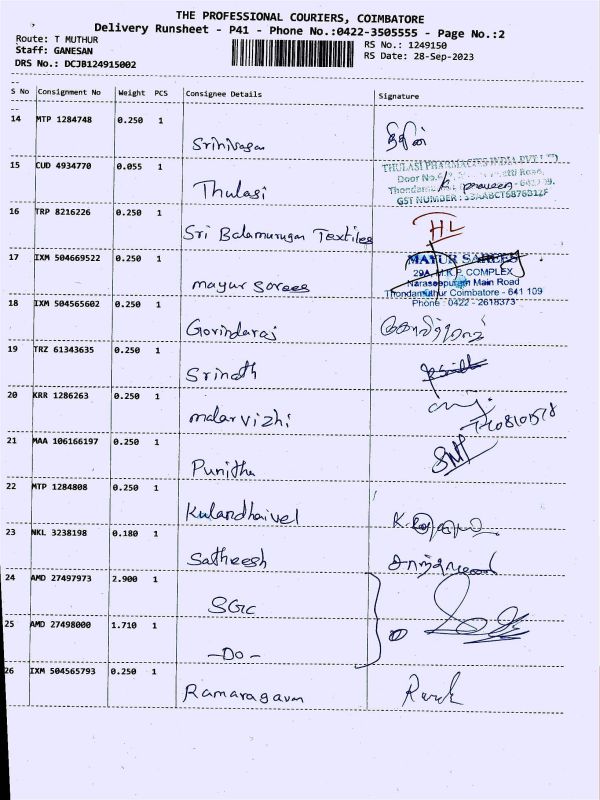 THE PROFESSIONAL COURIERS, COIMBATORE
Delivery Runsheet - P41 - Phone No.:0422-3505555 - Page No.:2
Route: T MUTHUR
Staff: GANESAN
DRS No.: DCJB124915002
RS No.: 1249150
RS Date: 28-Sep-2023
S No Consignment No Weight PCS Consignee Details Signature
14 MTP 1284748 0.250 1 Srinivasan
15 CUD 4934770 0.055 1 Thulasi
THULASI PHARMACIES INDIA PVT LTD
Door No.
Road,
GST NUMBER :
16 TRP 8216226 0.250 1 Sri Balamurugan Textiles HL
17 IXM 504669522 0.250 1 mayur sarees
MAYUR SAREES
29A, M.K.P. COMPLEX
Naraseepuram Main Road
Thondamuthur Coimbatore - 641 109
Phone : 0422 - 2618373
18 IXM 504565602 0.250 1 Govindaraj கோவிந்தராஜ்
19 TRZ 61343635 0.250 1 Srinath
20 KRR 1286263 0.250 1 malarvizhi
21 MAA 106166197 0.250 1 Punitha
22 MTP 1284808 0.250 1 Kulandhaivel
23 NKL 3238198 0.180 1 Satheesh
24 AMD 27497973 2.900 1 SGC
25 AMD 27498000 1.710 1 -Do-
26 IXM 504565793 0.250 1 Ramaragavan